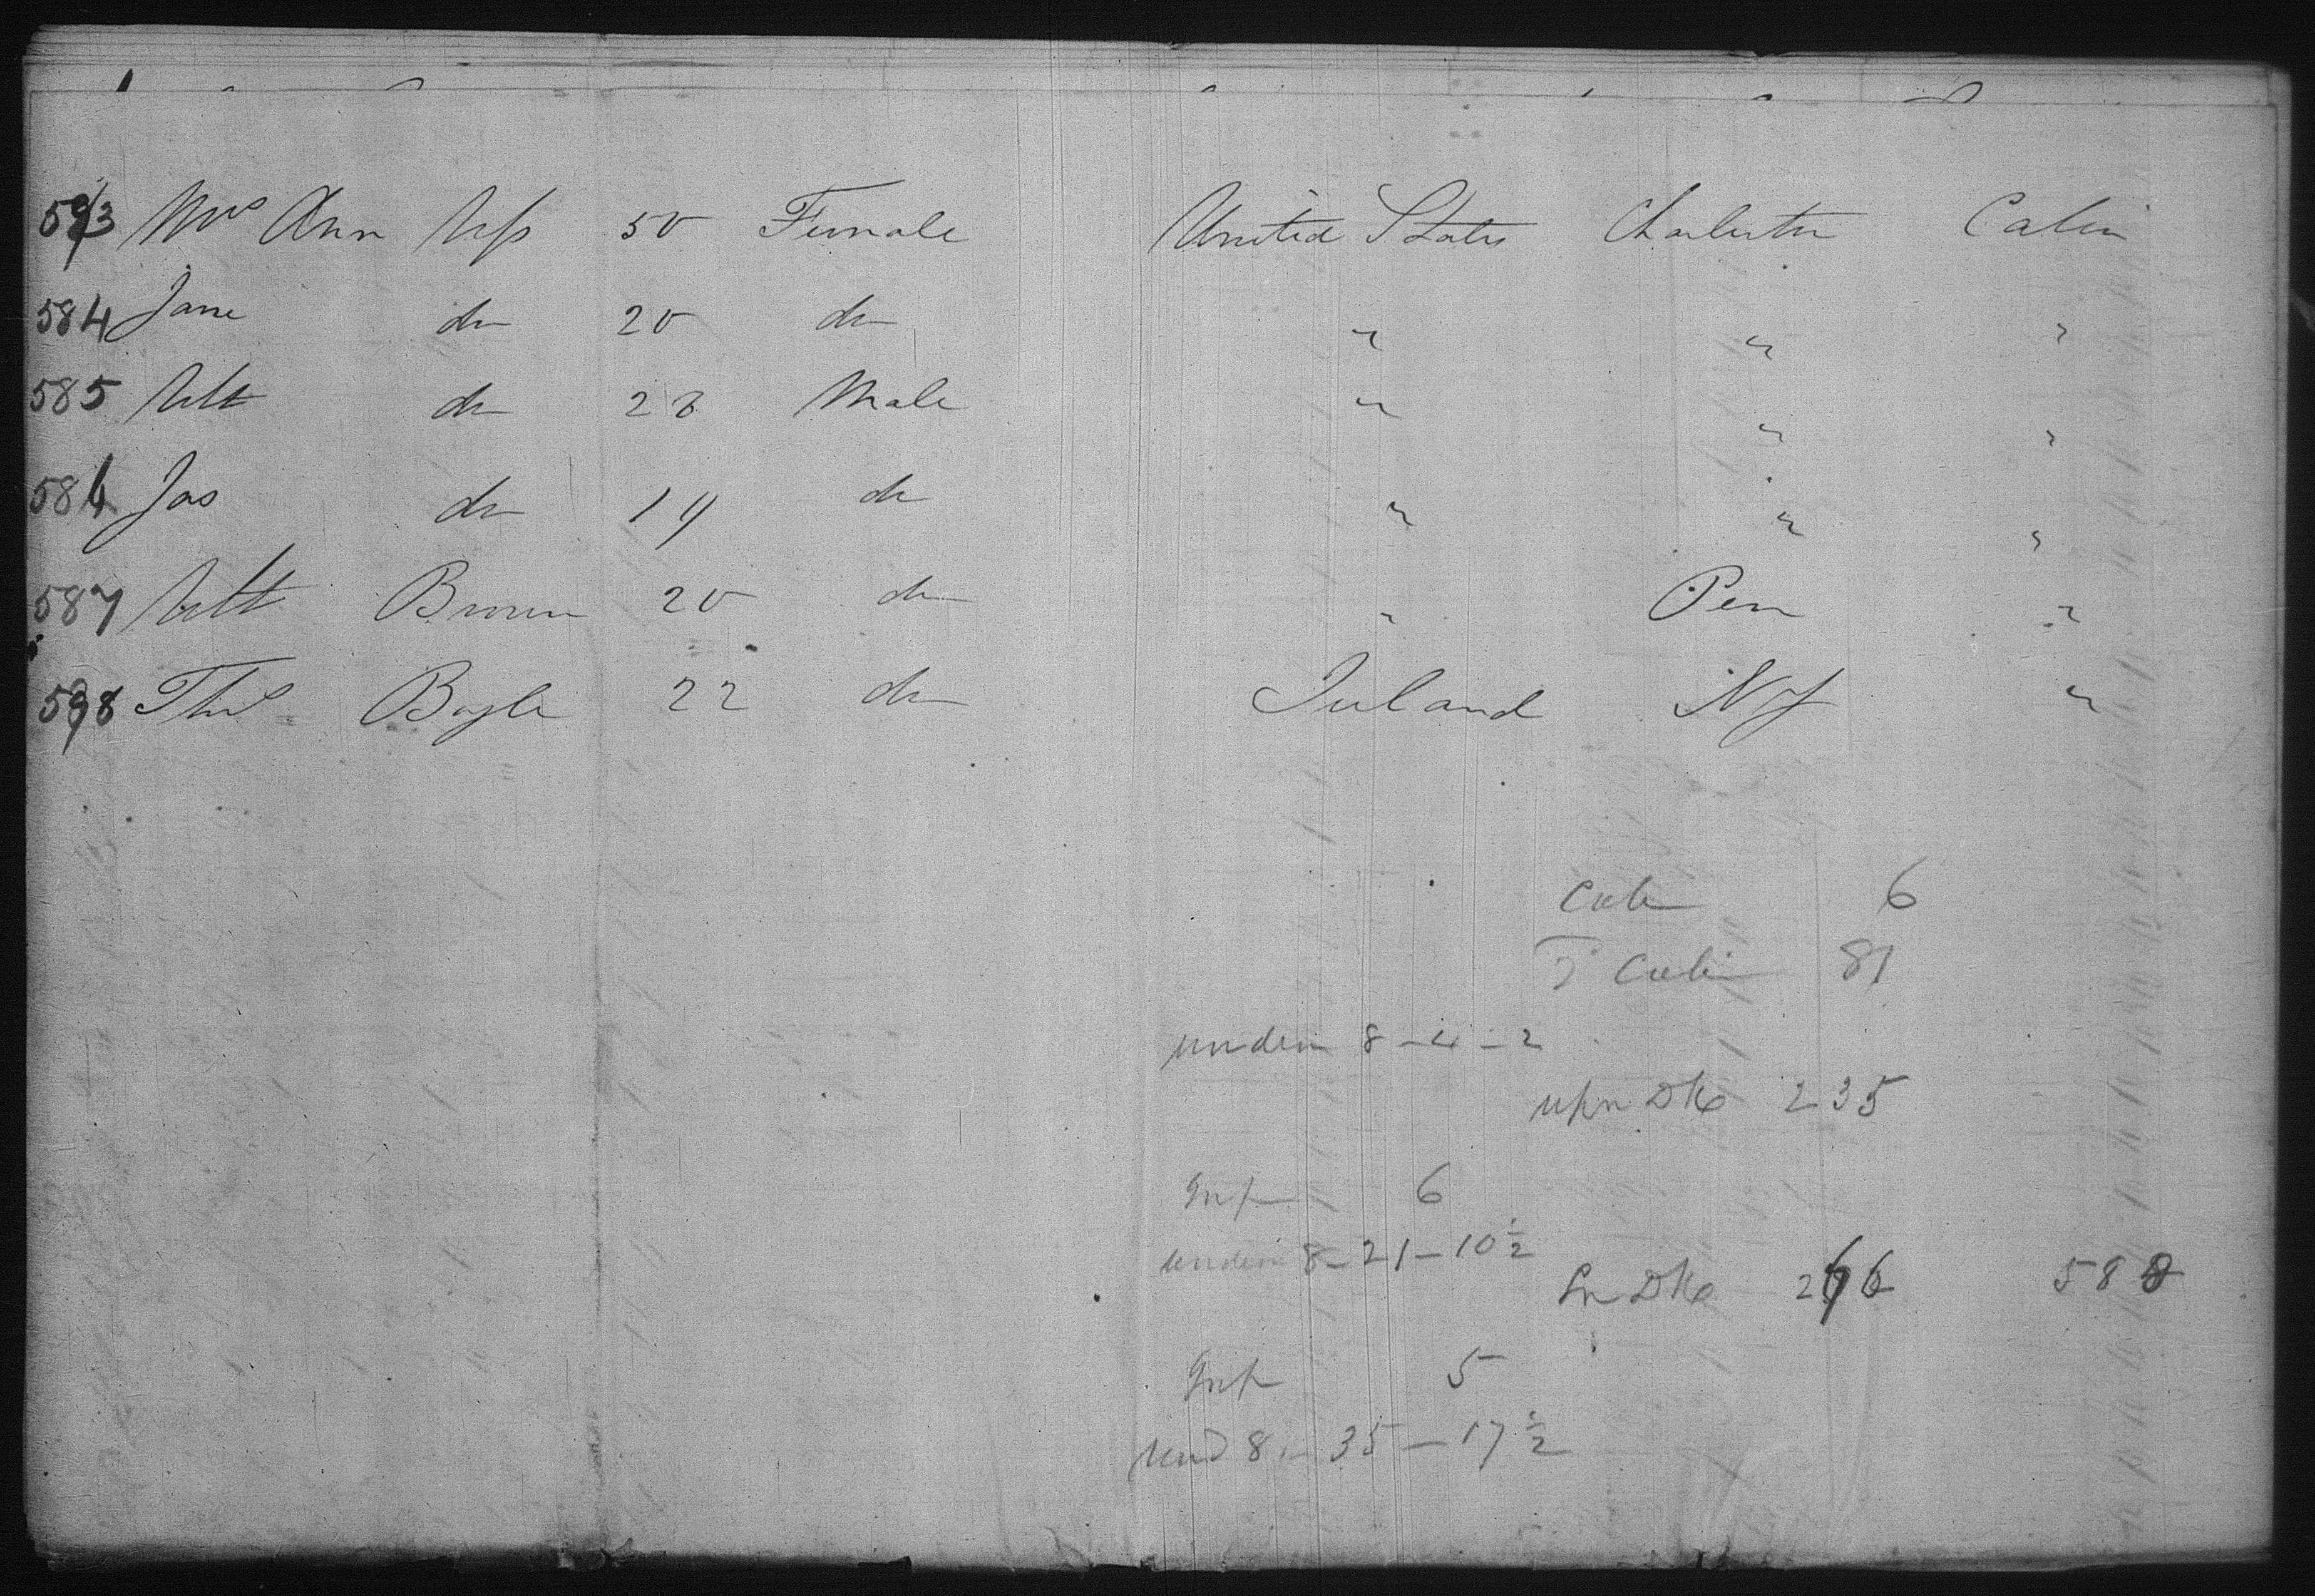 583 Mrs Ann 50 Female United States Charleston Cabin
584 Jane do 20 do " " "
585 Wm do 28 Male " " "
586 Jas do 19 do " " "
587 Wm Brown 20 do " Pen "
588 Thos Boyle 22 do Ireland NY "
Cabin 6
2 Cabin 81
under 8 - 4 - 2
upr Dk 235
Inft 6
under 8 - 21 - 10 1/2
Lr Dk 266 588
Inft 5
und 8 - 35 - 17 1/2